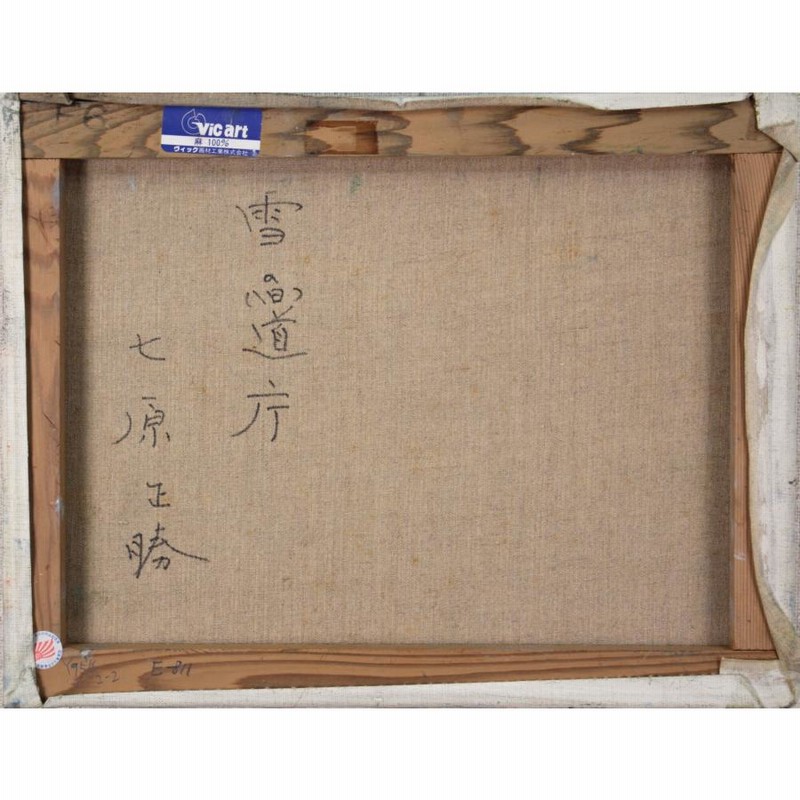 F6
Vicart
麻 100%
ヴィック画材工業株式会社
雪の(旧)道庁
七原正勝
E-811